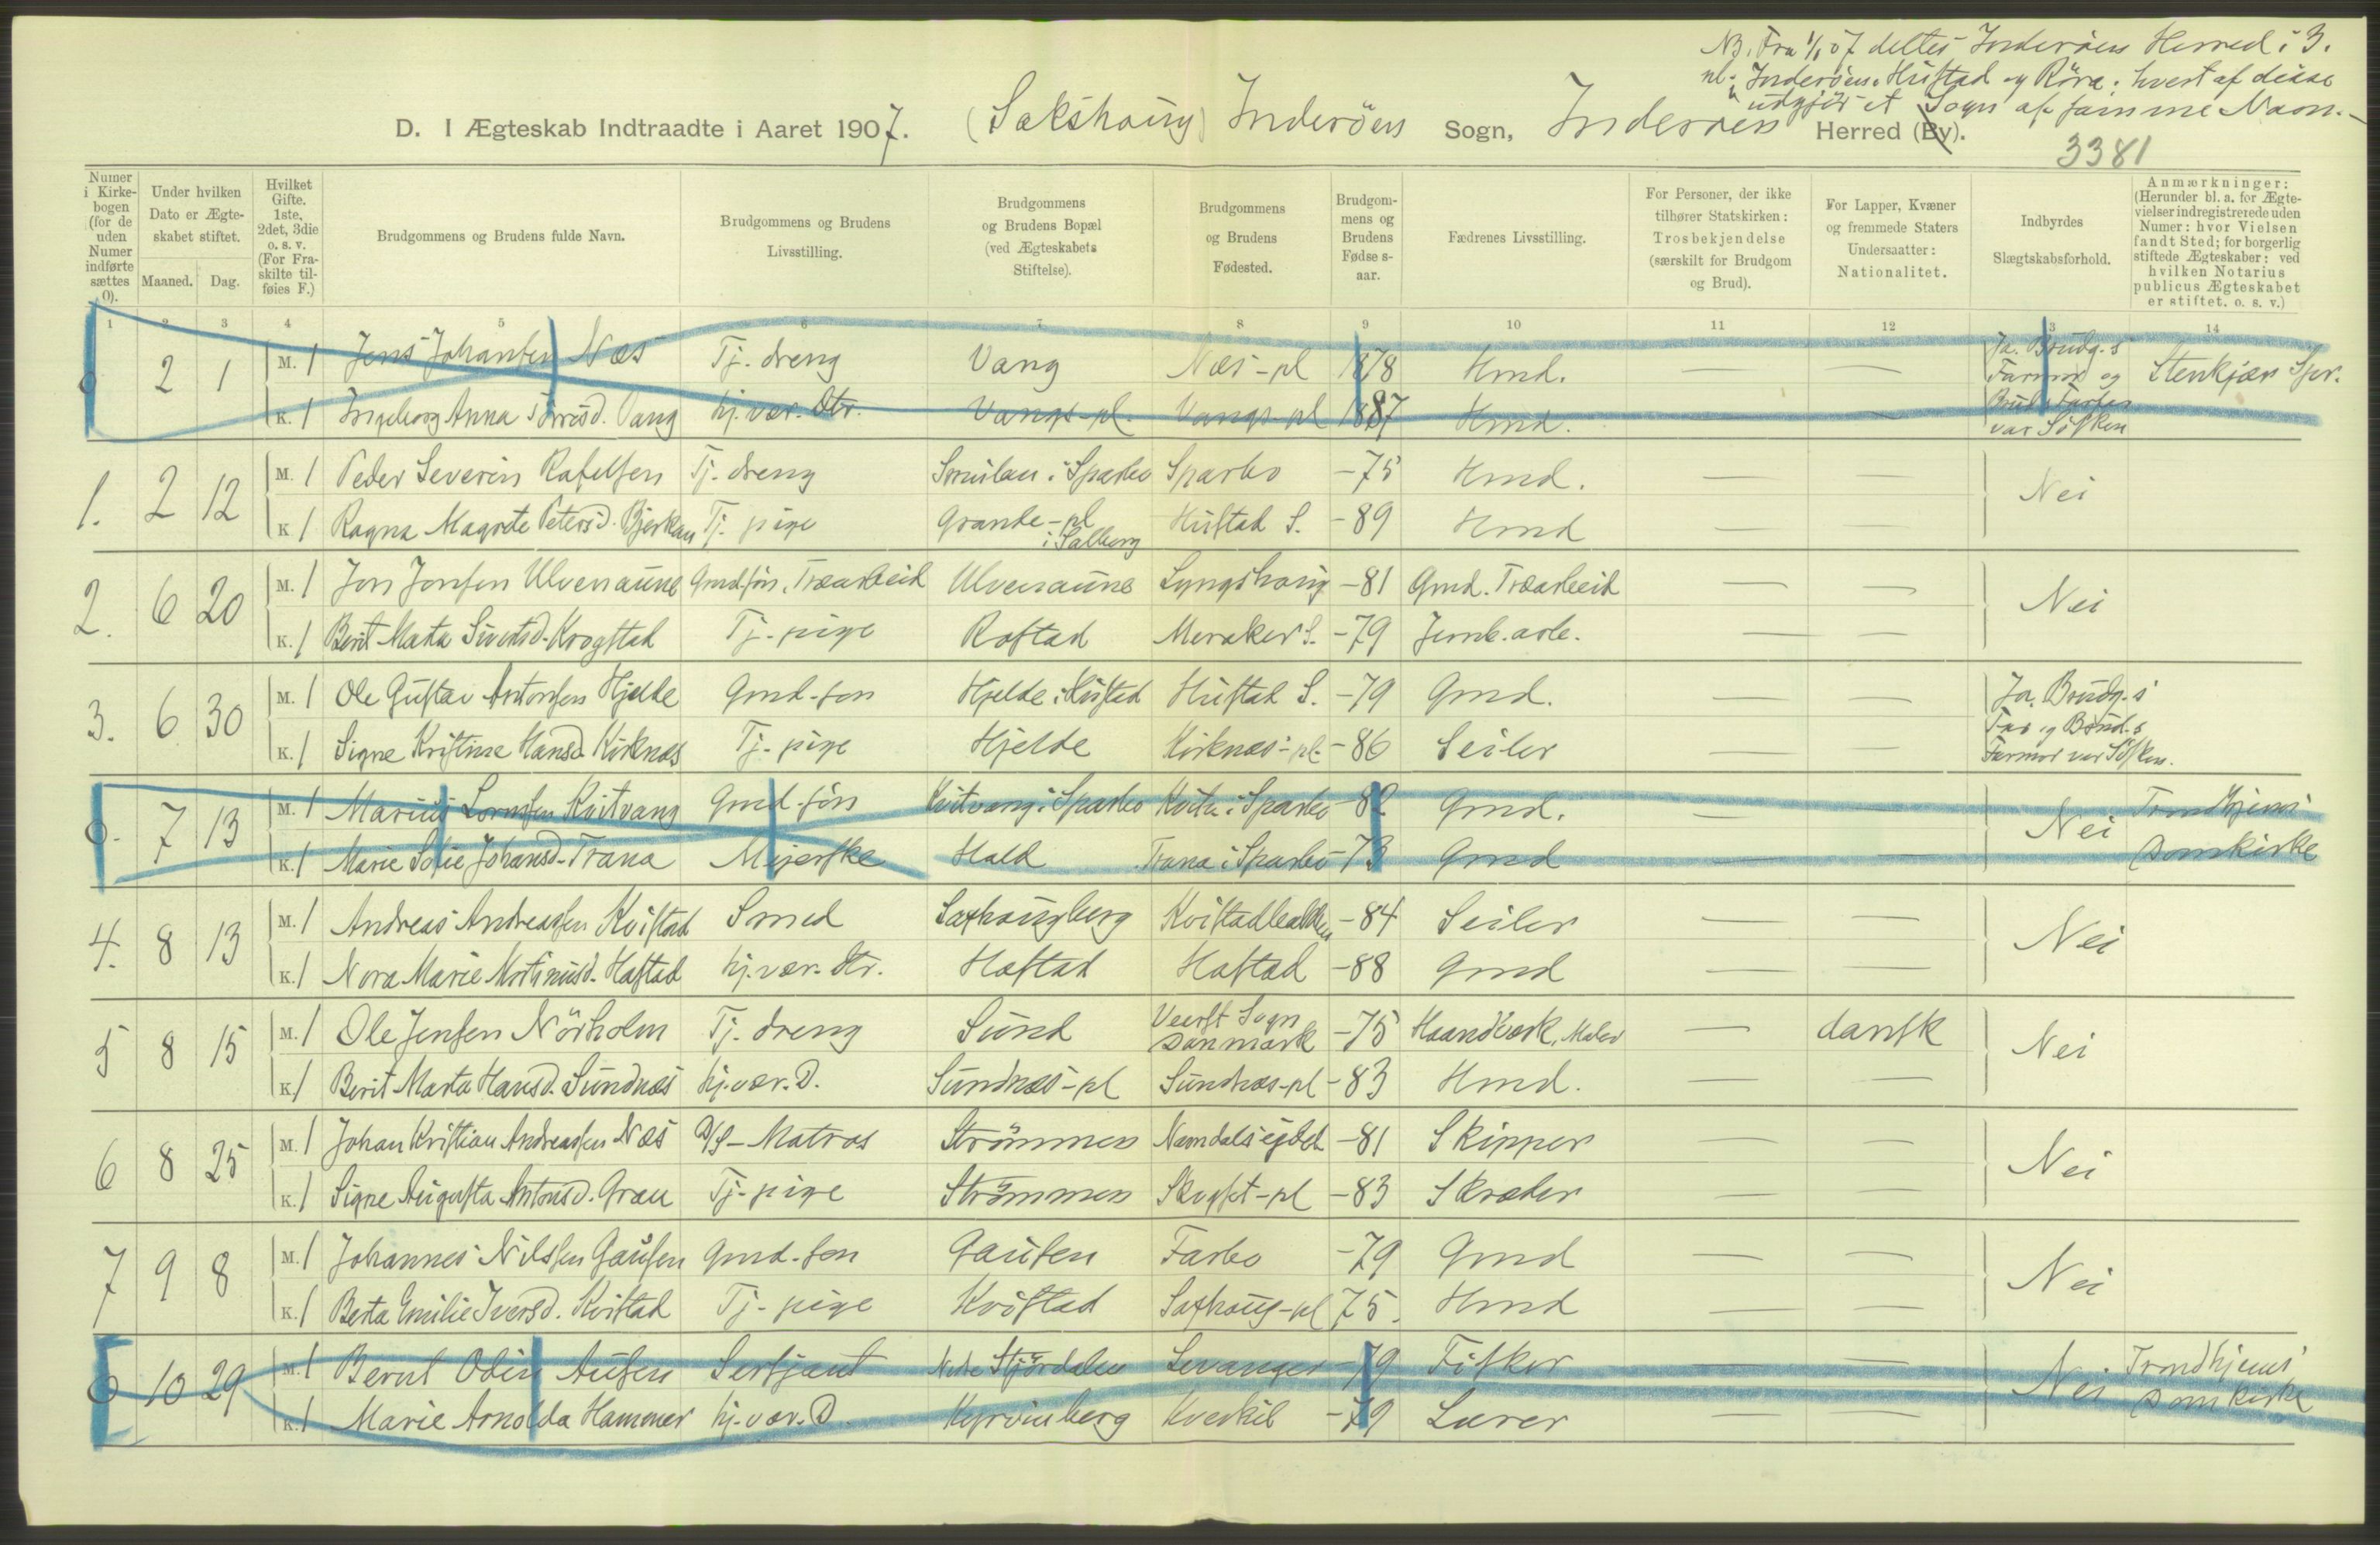 NB. Fra 1/1 07 deltes Inderøens Herred i 3.
nl. Inderøen, Hustad og Røra; hvert af disse
udgjør et Sogn af samme Navn.
D. I Ægteskab Indtraadte i Aaret 1907. (Sakshaug) Inderøen Sogn, Inderøen Herred (By).
3381
Numer i Kirkebogen (for de uden Numer indførte sættes 0).
Under hvilken Dato er Ægteskabet stiftet.
Maaned. Dag.
Hvilket Gifte. 1ste, 2det, 3die o. s. v. (For Fraskilte tilføies F.)
Brudgommens og Brudens fulde Navn.
Brudgommens og Brudens Livsstilling.
Brudgommens og Brudens Bopæl (ved Ægteskabets Stiftelse).
Brudgommens og Brudens Fødested.
Brudgommens og Brudens Fødselsaar.
Fædrenes Livsstilling.
For Personer, der ikke tilhører Statskirken: Trosbekjendelse (særskilt for Brudgom og Brud).
For Lapper, Kvæner og fremmede Staters Undersaatter: Nationalitet.
Indbyrdes Slægtskabsforhold.
Anmærkninger: (Herunder bl. a. for Ægtevielser indregistrerede uden Numer: hvor Vielsen fandt Sted; for borgerlig stiftede Ægteskaber: ved hvilken Notarius publicus Ægteskabet er stiftet. o. s. v.)
1 2 3 4 5 6 7 8 9 10 11 12 13 14
0 2 1 M. 1 Jens Johansen Næs Tj. dreng Vang Næs-pl 1878 Hmd. — — Ja. Brudg.s Farmor og Stenkjær Spr.
K. 1 Ingeborg Anna Vang hj. vær. Dtr. Vangs-pl. Vangs-pl 1887 Hmd. — — Bruds Farfar var Søsken
1. 2 12 M. 1 Peder Severin Rafelsen Tj. dreng i Sparbo Sparbo -75 Hmd. — — Nei
K 1 Ragna Magrete Petersd. Bjerkan Tj. pige Grande-pl i Salberg Hustad S. -89 Hmd — —
2. 6 20 M. 1 Jon Jonsen Ulvenaune Gmd.søn, Træarbeid Ulvenaune Lyngshaug -81 Gmd. Træarbeid — — Nei
K. 1 Berit Marta Sivertsd. Krogstad Tj. pige Rostad Meraker S. -79 Jernb. arb. — —
3. 6 30 M. 1 Ole Gustav Antonsen Hjelde Gmd-søn Hjelde i Hustad Hustad S. -79 Gmd. — — Ja, Brudg.s
K. 1 Signe Kristine Hansd. Kirknæs Tj. pige Hjelde Kirknæs-pl. -86 Seiler — — Far og Brud.s Farmor var Søsken.
0. 7 13 M. 1 Marius Lornsen Kvitvang Gmd-søn Kvitvang i Sparbo i Sparbo -82 Gmd. — — Nei Trondhjems
K. 1 Marie Sofie Johansd. Trana Mejerske Hald Trana i Sparbo -73 Gmd — — Domkirke
4. 8 13 M. 1 Andreas Andreassen Kvistad Smed Saxhaugberg Kvistadbakken -84 Seiler — — Nei
K. 1 Nora Marie Martinusd. Hastad hj. vær. Dtr. Hastad Hastad -88 Gmd — —
5 8 15 M. 1 Ole Jensen Nørholm Tj. dreng Sund Veerst Sogn Danmark -75 Haandværk, Maler — dansk Nei
K 1 Berit Marta Hansd. Sundnæs hj. vær. D. Sundnæs-pl Sundnæs-pl -83 Hmd. — —
6 8 25 M. 1 Johan Kristian Andreassen Næs D/S-Matros Strømmen Namdalseidet -81 Skipper — — Nei
K. 1 Signe Augusta Antonsd. Gran Tj. pige Strømmen -pl -83 Skræder — —
7 9 8 M. 1 Johannes Nilssen Gausen Gmd-søn Gausen Farbo -79 Gmd — — Nei
K. 1 Berta Emilie Iversd. Kvistad Tj. pige Kvistad Saxhaug-pl 75. Hmd — —
0 10 29 M. 1 Bernt Odin Ausen Sersjant Nedre Stjørdalen Levanger -79 Fisker — — Nei Trondhjems
K. 1 Marie Arnolda Hammer hj. vær. D. -79 Lærer — — Domkirke